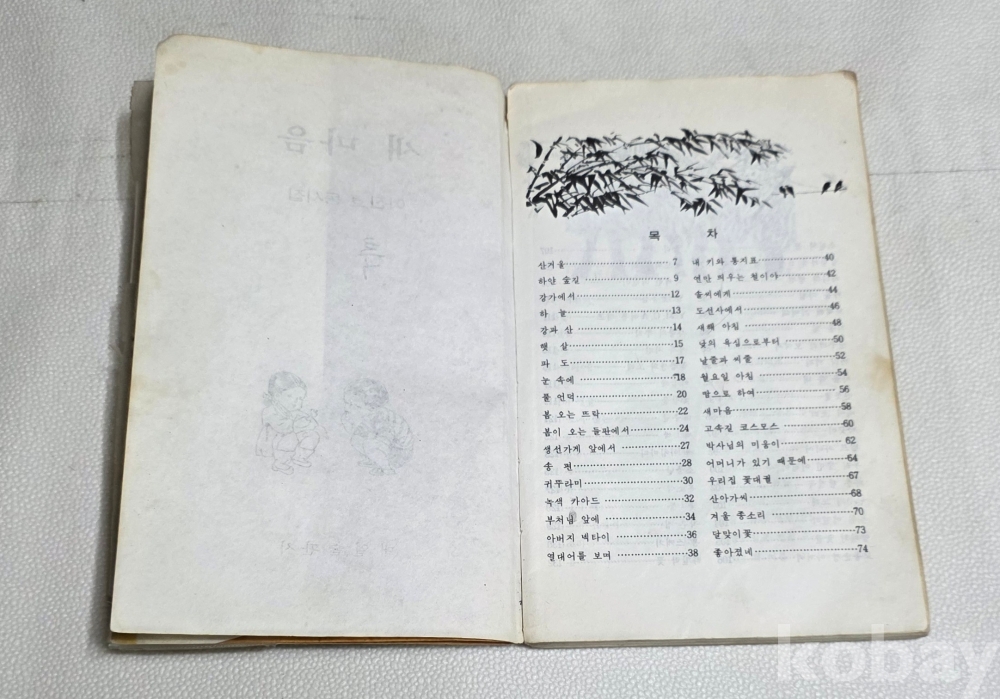 새 마음
목 차
산거울 7
하얀 숲길 9
강가에서 12
하 늘 13
강과 산 14
햇 살 15
파 도 17
눈 속에 18
풀 언덕 20
봄 오는 뜨락 22
봄이 오는 들판에서 24
생선가게 앞에서 27
송 편 28
귀뚜라미 30
녹색 카아드 32
부처님 앞에 34
아버지 넥타이 36
열대어를 보며 38
내 키와 통지표 40
연만 띄우는 철이야 42
솔씨에게 44
도선사에서 46
새해 아침 48
낮의 욕심으로부터 50
날줄과 씨줄 52
월요일 아침 54
땀으로 하여 56
새마음 58
고속길 코스모스 60
박사님의 미움이 62
어머니가 있기 때문에 64
우리집 꽃대궐 67
산아가씨 68
겨울 종소리 70
달맞이꽃 73
좋아졌네 74
kobay